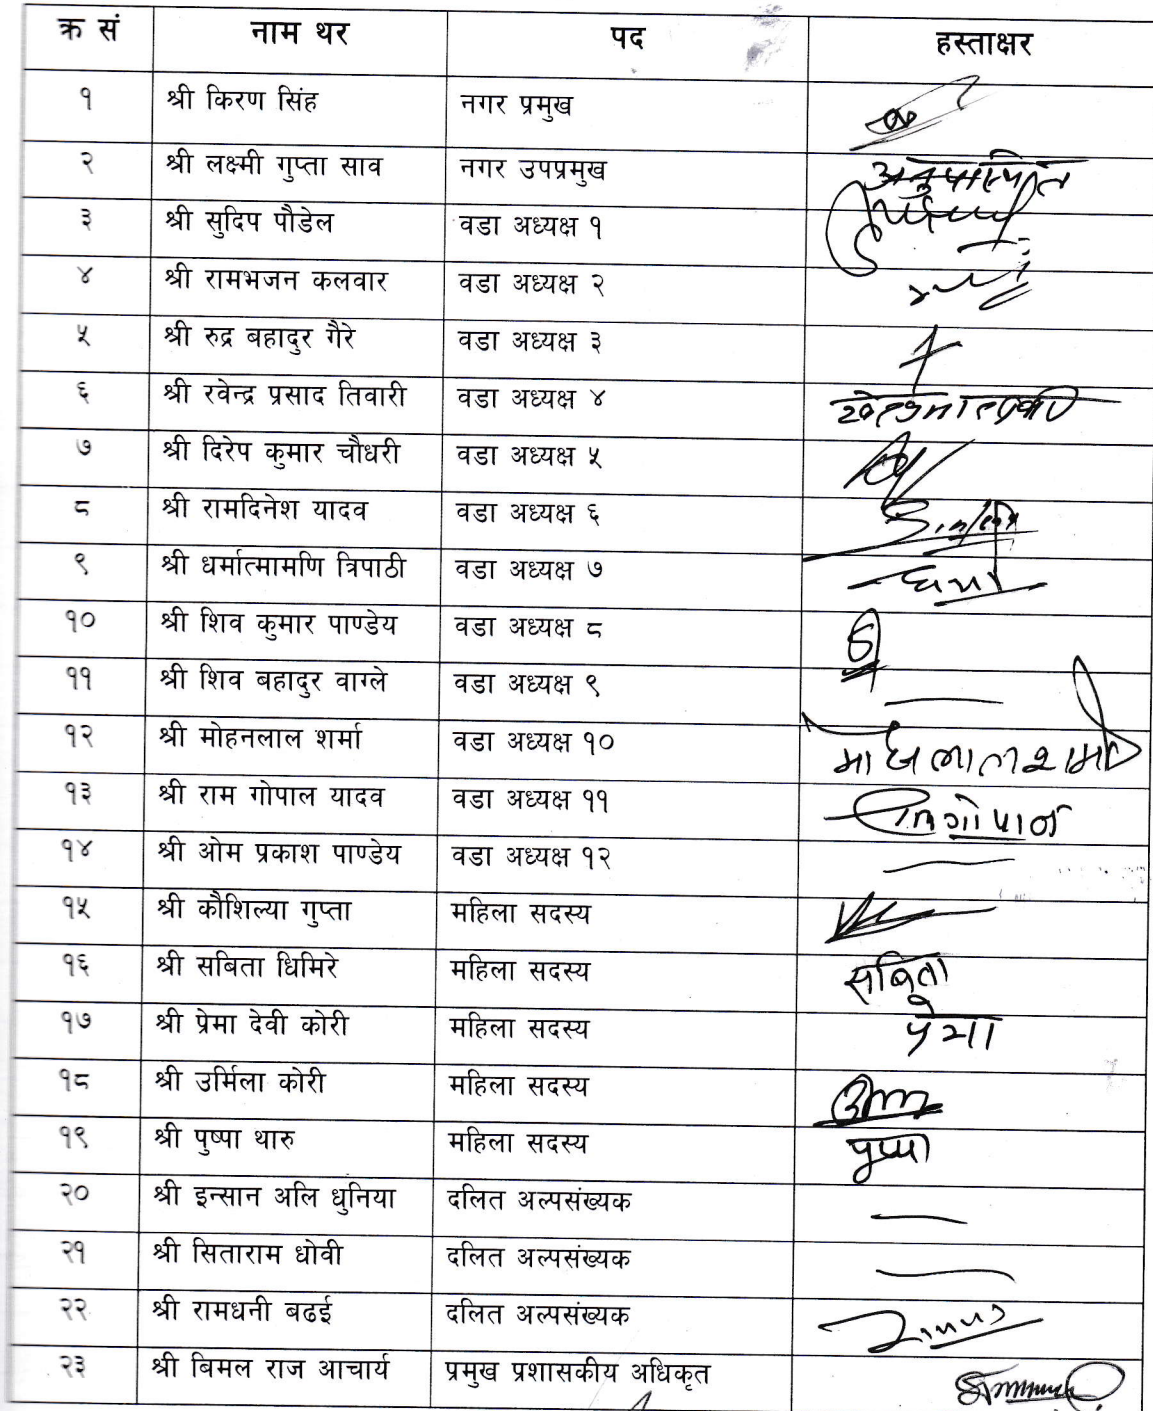 क्र सं नाम थर पद हस्ताक्षर
१ श्री किरण सिंह नगर प्रमुख
२ श्री लक्ष्मी गुप्ता साव नगर उपप्रमुख अनुपस्थित
३ श्री सुदिप पौडेल वडा अध्यक्ष १
४ श्री रामभजन कलवार वडा अध्यक्ष २
५ श्री रुद्र बहादुर गैरे वडा अध्यक्ष ३
६ श्री रवेन्द्र प्रसाद तिवारी वडा अध्यक्ष ४
७ श्री दिरेप कुमार चौधरी वडा अध्यक्ष ५
८ श्री रामदिनेश यादव वडा अध्यक्ष ६
९ श्री धर्मात्मामणि त्रिपाठी वडा अध्यक्ष ७
१० श्री शिव कुमार पाण्डेय वडा अध्यक्ष ८
११ श्री शिव बहादुर वाग्ले वडा अध्यक्ष ९
१२ श्री मोहनलाल शर्मा वडा अध्यक्ष १०
१३ श्री राम गोपाल यादव वडा अध्यक्ष ११
१४ श्री ओम प्रकाश पाण्डेय वडा अध्यक्ष १२
१५ श्री कौशिल्या गुप्ता महिला सदस्य
१६ श्री सबिता धिमिरे महिला सदस्य सबिता
१७ श्री प्रेमा देवी कोरी महिला सदस्य
१८ श्री उर्मिला कोरी महिला सदस्य
१९ श्री पुष्पा थारु महिला सदस्य पुष्पा
२० श्री इन्सान अलि धुनिया दलित अल्पसंख्यक
२१ श्री सिताराम धोवी दलित अल्पसंख्यक
२२ श्री रामधनी बढई दलित अल्पसंख्यक
२३ श्री बिमल राज आचार्य प्रमुख प्रशासकीय अधिकृत